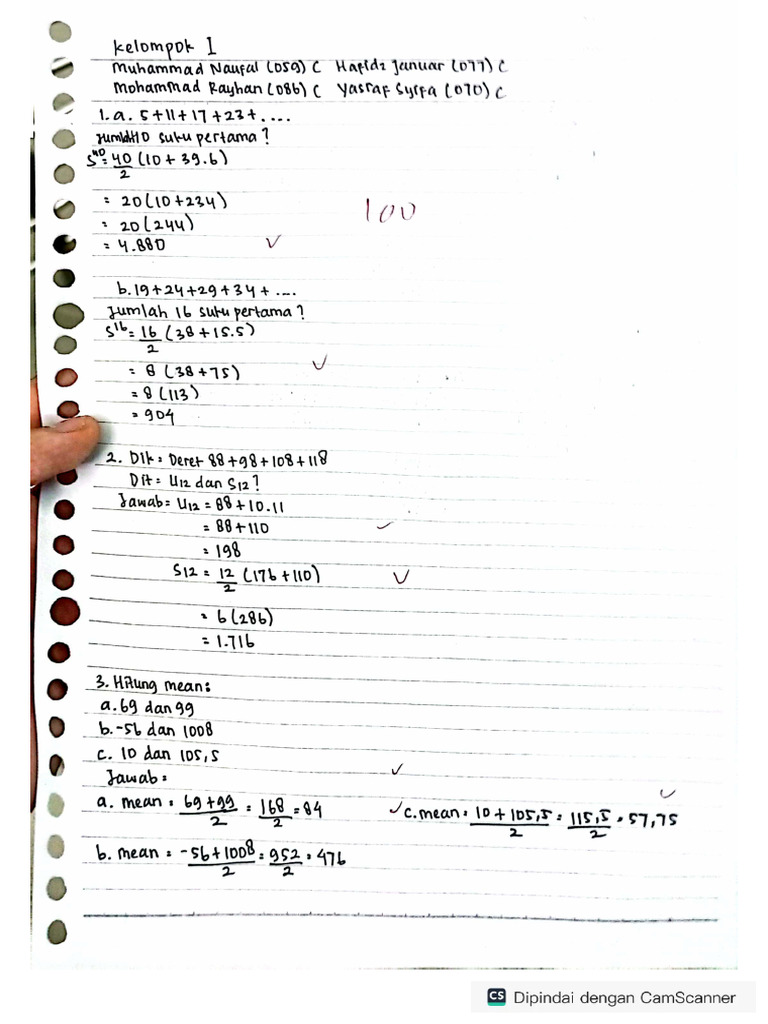 Kelompok I
Muhammad Naufal (059) C Hafidz Januar (077) C
Mohammad Rayhan (086) C Yasraf Syifa (070) C
1. a. 5+11+17+23+....
suku pertama?
S40= 40/2 (10+39.6)
= 20(10+234)
= 20(244)
= 4.880 ✓
100
b. 19+24+29+34+....
Jumlah 16 suku pertama?
S16= 16/2 (38+15.5)
= 8 (38+75) ✓
= 8 (113)
= 904
2. Dik = Deret 88+98+108+118
Dit = U12 dan S12?
Jawab = U12 = 88+10.11
= 88+110 ✓
= 198
S12 = 12/2 (176+110) ✓
= 6(286)
= 1.716
3. Hitung mean:
a. 69 dan 99
b. -56 dan 1008
c. 10 dan 105,5
Jawab = ✓
a. mean = 69+99/2 = 168/2 = 84 ✓ c. mean = 10+105,5/2 = 115,5/2 = 57,75 ✓
b. mean = -56+1008/2 = 952/2 = 476
CS Dipindai dengan CamScanner